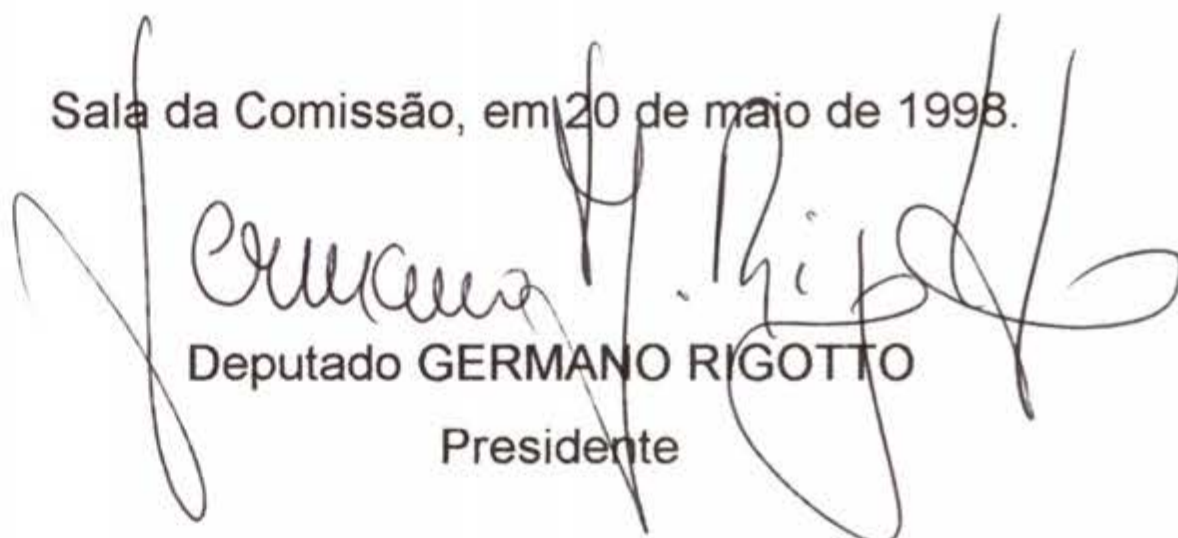 Sala da Comissão, em 20 de maio de 1998.
Deputado GERMANO RIGOTTO
Presidente